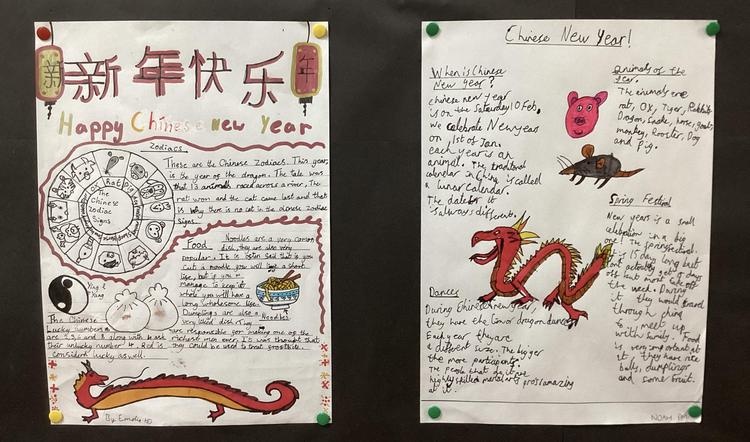 新
新年快乐
年
Happy Chinese New Year
Zodiacs
These are the Chinese Zodiacs. This year,
is the year of the dragon. The tale was
that 13 animals raced across a river, The
rat won and the cat came last and that
is why there is no cat in the chinese Zodiac
signs.
The
Chinese
Zodiac
Signs
Food Noodles are a very common
dish, they are also very
popular. It is said that is you
cut a noodle you will have a short
life, but if you
manage to keep it
whole you will have a
long wholesome life.
Dumplings are also a
very liked dish. They
are responsible for making one of the
richest men ever. It was thought that
they could be used to treat frostbite.
Noodles
Ying &
Yang
The Chinese
Lucky numbers
are 2,3,6 and 8 along with
their unlucky number 4. Red is
considert lucky as well.
By Emily HD
Chinese New Year!
When is Chinese
New Year?
chinese new year
is on the Saturday 10 Feb,
we celebrate New year
on 1st of Jan.
each year is an
animal. The traditonal
calendar in China is called
a lunar calendar.
The date of it
is always different.
Animals of the
year.
The animals are
rat, Ox, Tiger, Rabbit
Dragon, Snake, horse, goat,
monkey, Rooster, Dog
and Pig.
Spring Festival
New year is a small
celebration in a big
one! The spring festival.
it is 15 day long but
actually get 7 days
off but most take off
the week. During
it they would travel
through china
to meet up
with family. Food
is very important at
it, they have rice
balls, dumplings
and some fruit.
Dances
During Chinese new year,
they have the lion or dragon dance.
Each year they are
a different size. The bigger
the more participants.
The people that do it are
highly skilled martial arts pros amazing
at it.
NOAH